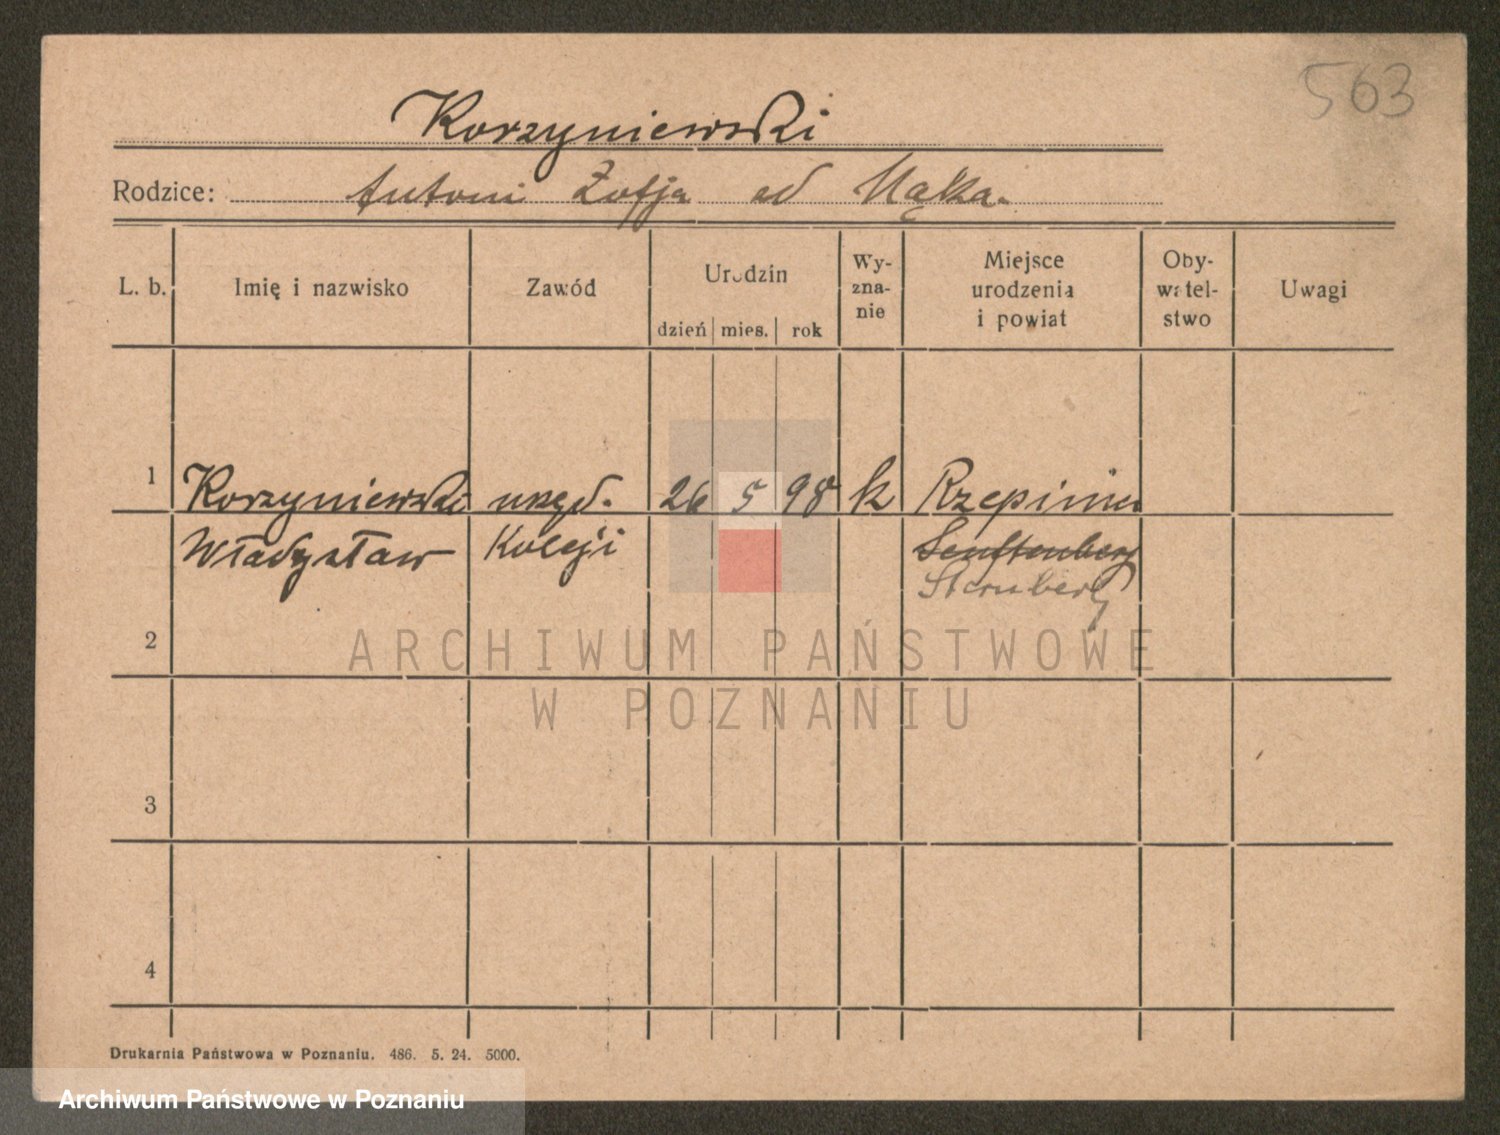 563
Korzyniewski
Rodzice: Antoni Zofja od Mąka.
L. b. Imię i nazwisko Zawód Urodzin dzień mies. rok Wy-zna-nie Miejsce urodzenia i powiat Oby-watel-stwo Uwagi
1 Korzyniewski urzęd. 26 5 98 k Rzepinin
Władysław Koleji Senftenberg
Sternberg
2
ARCHIWUM PAŃSTWOWE
W POZNANIU
3
4
Drukarnia Państwowa w Poznaniu. 486. 5. 24. 5000.
Archiwum Państwowe w Poznaniu